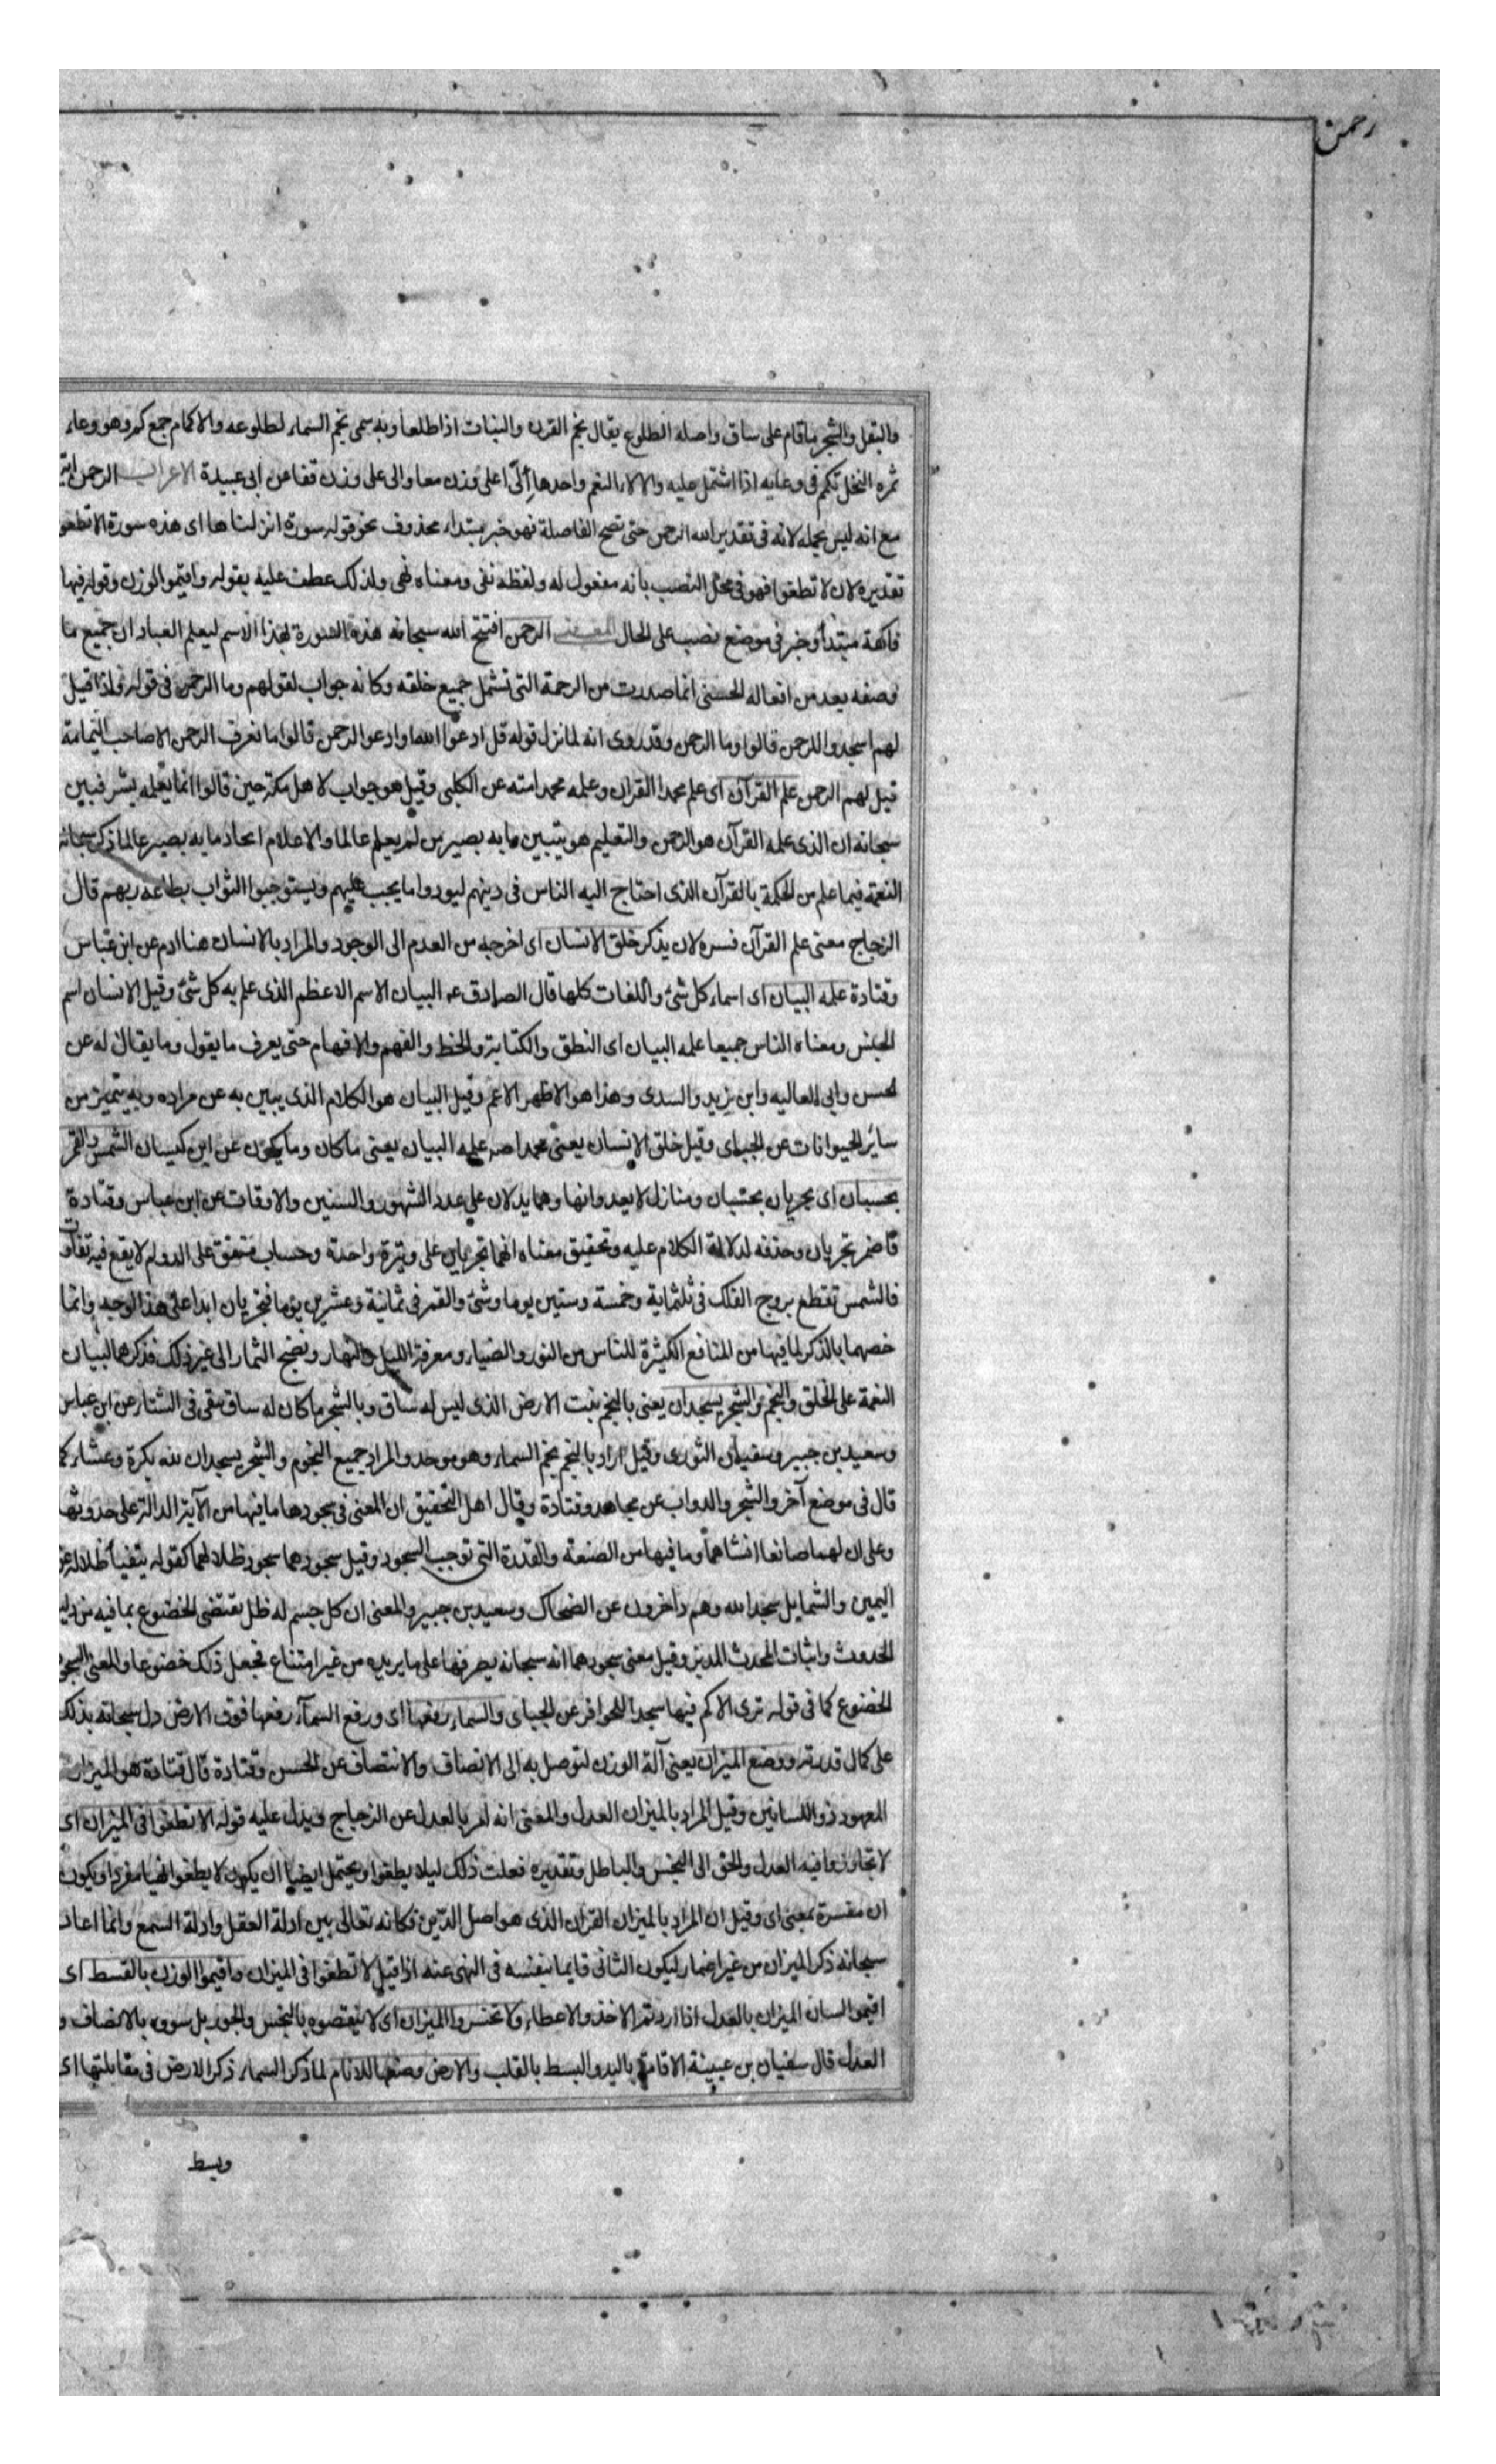 رحمن
والبقل والشجر ماقام على ساق واصله الطلوع يقال نجم القرن والنبات اذا طلعا وبه سمى نجم السماء لطلوعه والاكمام جمع كم وهو وعاء
ثمره النخل تكمم فى وعايه اذا اشتمل عليه والالاء النعم واحدها إلًى على وزن معا والى على وزن قفا عن ابى عبيدة الاعراب الرحمن آية
مع انه ليس بجمله لانه فى تقدير الله الرحمن حتى تصح الفاصلة فهو خبر مبتداء محذوف نحو قوله سورة انزلناها اى هذه سورة الا تطغوا
تقديره لان لا تطغوا فهو فى محل النصب بانه مفعول له ولفظه نفى ومعناه نهى ولذلك عطف عليه بقوله واقيموا الوزن وقوله فيها
فاكهة مبتدأ وخبر فى موضع نصب على الحال المعنى الرحمن افتتح الله سبحانه هذه السورة بهذا الاسم ليعلم العباد ان جميع ما
وصفه بعد من افعاله الحسنى انما صدرت من الرحمة التى تشمل جميع خلقه وكانه جواب لقولهم وما الرحمن فى قوله واذا قيل
لهم اسجدوا للرحمن قالوا وما الرحمن وقد روى انه لما نزل قوله قل ادعوا الله او ادعو الرحمن قالوا ما نعرف الرحمن الا صاحب اليمامة
قيل لهم الرحمن علم القرآن اى علم محمدا القران وعلمه محمد امته عن الكلبى وقيل هو جواب لاهل مكة حين قالوا انما يعلمه بشر فبين
سبحانه ان الذى علمه القرآن هو الرحمن والتعليم هو يتبيين ما به يصير من لم يعلم عالما والاعلام ايجاد ما به يصير عالما ذكر سبحانه
النعمة فيما علم من الحكمة بالقرآن الذى احتاج اليه الناس فى دينهم ليودوا ما يجب عليهم ويستوجبوا الثواب بطاعه ربهم قال
الزجاج معنى علم القرآن فسره لان يذكر خلق الانسان اى اخرجه من العدم الى الوجود والمراد بالانسان هنا ادم عن ابن عباس
وقتادة علمه البيان اى اسماء كل شئ واللغات كلها قال الصادق ع البيان الاسم الاعظم الذى علم به كل شئ وقيل الانسان اسم
الجنس ومعناه الناس جميعا علمه البيان اى النطق والكتابة والخط والفهم والافهام حتى يعرف ما يقول وما يقال له عن
لحسن وابى العاليه وابن زيد والسدى وهذا هو الاظهر الاعم وقيل البيان هو الكلام الذى يبين به عن مراده وبه يتميز من
سائر الحيوانات عن الجباى وقيل خلق الانسان يعنى محمدا ص علمه البيان يعنى ما كان وما يكون عن ابن كيسان الشمس والقمر
بحسبان اى يجريان بحسبان ومنازل لا يعدوانها وهما يدلان على عدد الشهور والسنين والاوقات عن ابن عباس وقتادة
فاضمر تجريان وحذفه لدلالة الكلام عليه وتحقيق معناه انهما تجريان على وتيرة واحدة وحساب متفق على الدوام لا يقع فيه تفاوت
فالشمس تقطع بروج الفلك فى ثلثماية وخمسة وستين يوما وشئ والقمر فى ثمانية وعشرين يوما فيجريان ابدا على هذا الوجه وانما
خصهما بالذكر لما فيهما من المنافع الكثيرة للناس من النور والضياء ومعرفة الليل والنهار ونضج الثمار الى غير ذلك فذكرهما لبيان
النعمة على الخلق والنجم والشجر يسجدان يعنى بالنجم نبت الارض الذى ليس له ساق وبالشجر ما كان له ساق يبقى فى الشتاء عن ابن عباس
وسعيد بن جبير وسفيان الثورى وقيل اراد بالنجم نجم السماء وهو موحد والمراد جميع النجوم والشجر يسجدان لله بكرة وعشيا كما
قال فى موضع آخر والشجر والدواب عن مجاهد وقتادة وقال اهل التحقيق ان المعنى فى سجودهما ما فيهما من الآية الدالة على حدوثهما
وعلى ان لهما صانعا انشاهما وما فيهما من الصنعة والقدرة التى توجب السجود وقيل سجودهما سجود ظلالهما كقوله يتفيأ ظلاله عن
اليمين والشمايل سجدا لله وهم داخرون عن الضحاك وسعيد بن جبير والمعنى ان كل جسم له ظل يقتضى الخضوع بما فيه من دليل
الحدوث واثبات المحدث المدبر وقيل معنى سجودهما انه سبحانه يصرفهما على ما يريده من غير امتناع فجعل ذلك خضوعا والمعنى السجود
الخضوع كما فى قوله ترى الاكم فيها سجدا للحوافر عن الجباى والسماء رفعها اى ورفع السماء رفعها فوق الارض دل سبحانه بذلك
على كمال قدرته ووضع الميزان يعنى آلة الوزن لتوصل به الى الانصاف والانتصاف عن الحسن وقتادة قال قتادة هو الميزان
المعهود ذو اللسانين وقيل المراد بالميزان العدل والمعنى انه امر بالعدل عن الزجاج ويدل عليه قوله الا تطغوا فى الميزان اى
لا تجاوزوا فيه العدل والحق الى البخس والباطل وتقديره فعلت ذلك ليلا يطغوا ويحتمل ايضا ان يكون لا يطغوا نهيا مفردا ويكون
ان مفسرة بمعنى اى وقيل ان المراد بالميزان القران الذى هو اصل الدين فكانه تعالى بين ادلة العقل وادلة السمع وانما اعاد
سبحانه ذكر الميزان من غير اضمار ليكون الثانى قايما بنفسه فى النهى عنه اذا قيل لا تطغوا فى الميزان واقيموا الوزن بالقسط اى
اقيموا لسان الميزان بالعدل اذا اردتم الاخذ والاعطاء ولا تخسروا الميزان اى لا تنقصوه بالبخس والجور بل سووه بالانصاف و
العدل قال سفيان بن عيينة الاقامة باليد والبسط بالقلب والارض وضعها للانام لما ذكر السماء ذكر الارض فى مقابلتها اى
وبسط